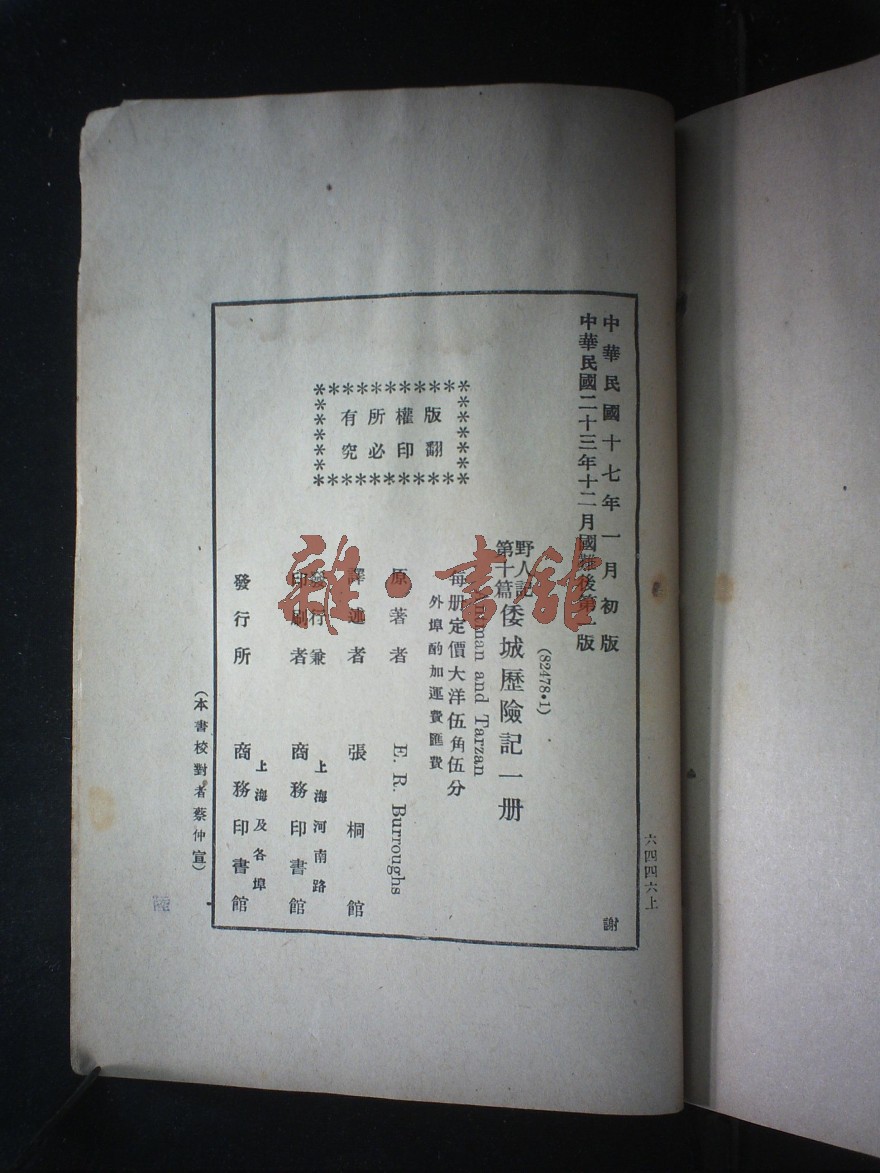 六四四六上
中華民國十七年一月初版
中華民國二十三年十二月國難後第 版
謝
(82478•1)
野人記
第十篇
倭城歷險記一册
man and Tarzan
每册定價大洋伍角伍分
外埠酌加運費匯費
版權所有
翻印必究
原著者 E. R. Burroughs
譯述者 張桐館
發行兼
印刷者
上海河南路
商務印書館
發行所
上海及各埠
商務印書館
(本書校對者蔡仲宣)
雜·書館